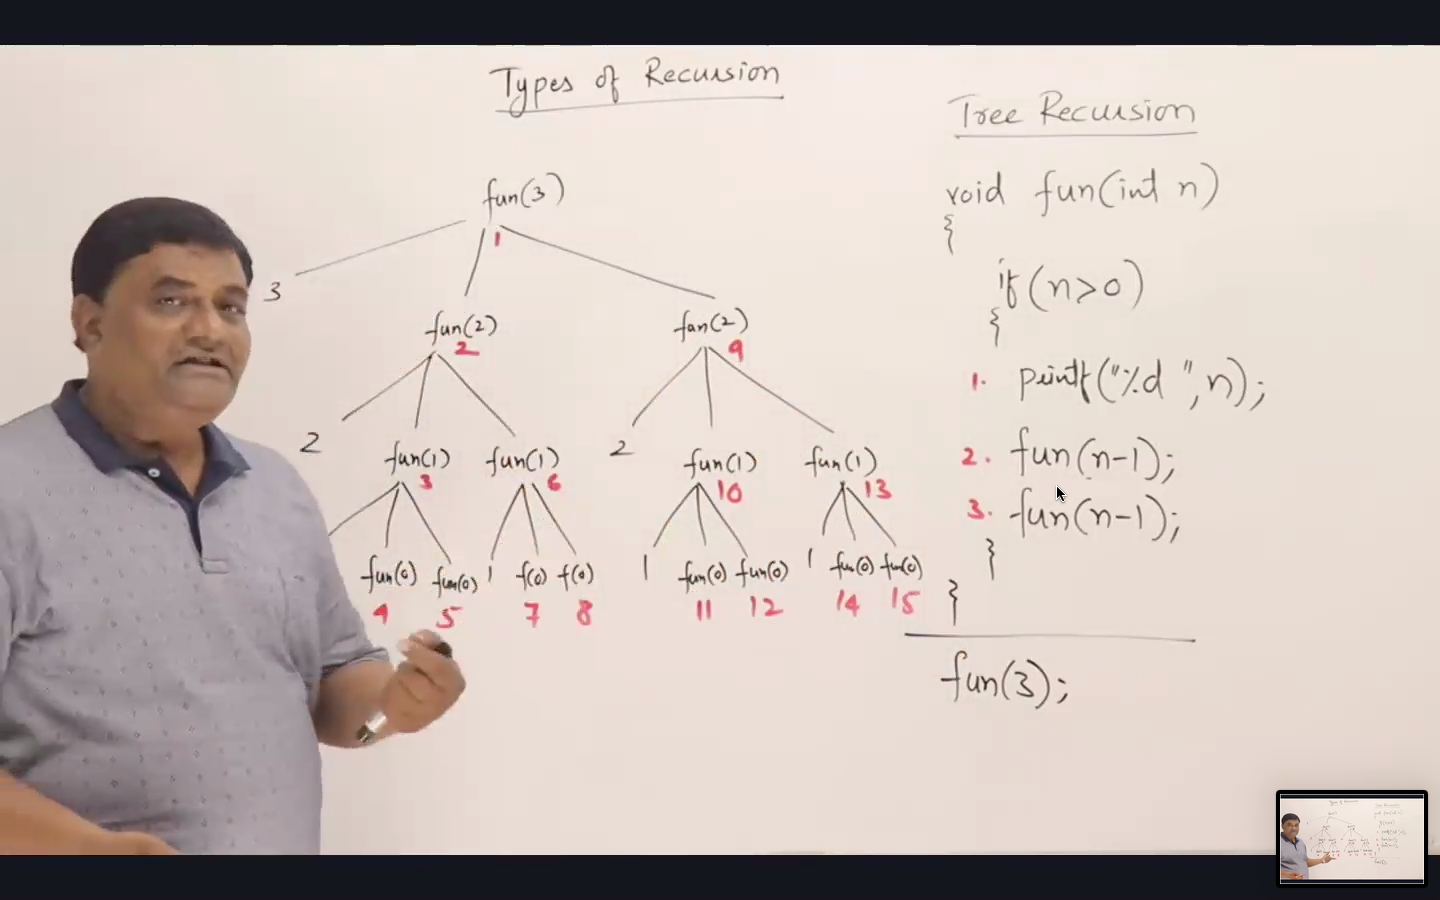 Types of Recursion
fun(3)
1
3
fun(2)
2
fun(2)
9
2
fun(1)
3
fun(1)
6
2
fun(1)
10
fun(1)
13
fun(0)
4
fun(0)
5
1
f(0)
7
f(0)
8
1
fun(0)
11
fun(0)
12
1
fun(0)
14
fun(0)
15
Tree Recursion
void fun(int n)
{
if(n>0)
{
1. printf("%d ",n);
2. fun(n-1);
3. fun(n-1);
}
}
fun(3);